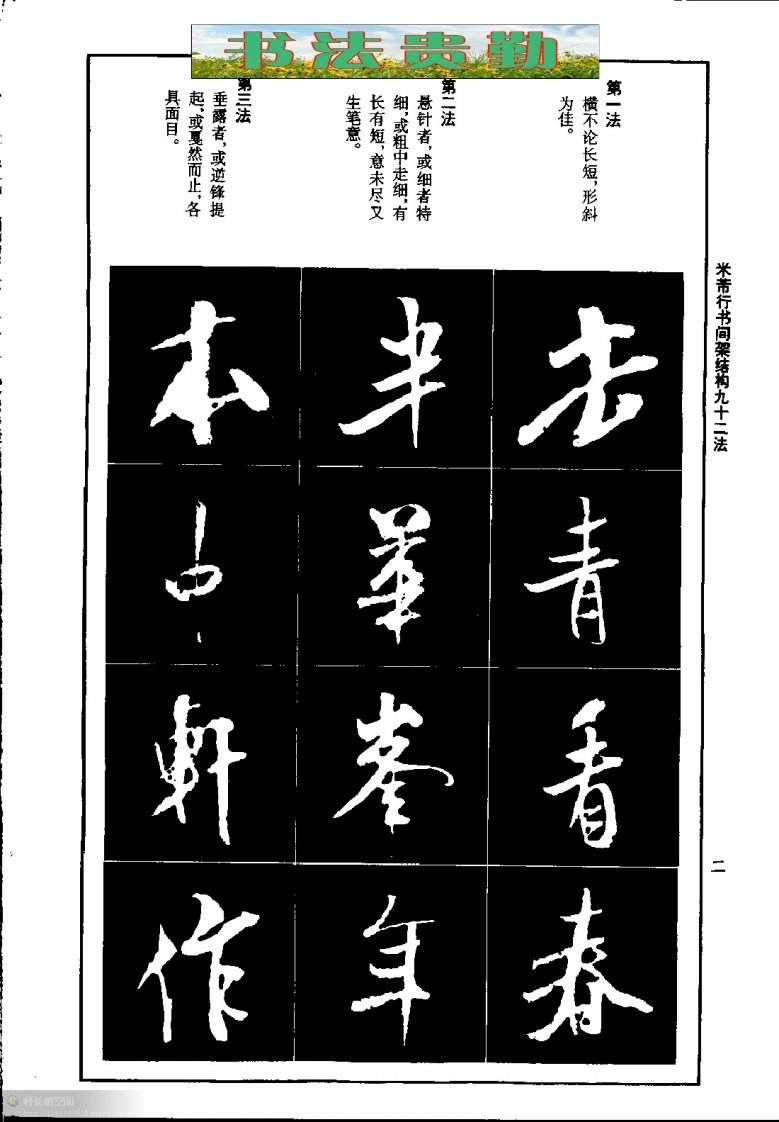 书法贵勤
米芾行书间架结构九十二法
二
第一法
横不论长短，形斜
为佳。
第二法
悬针者，或细者特
细，或粗中走细，有
长有短，意未尽又
生笔意。
第三法
垂露者，或逆锋提
起，或戛然而止，各
具面目。
去
青
看
春
半
华
峯
年
本
中
軒
作
科长的空间